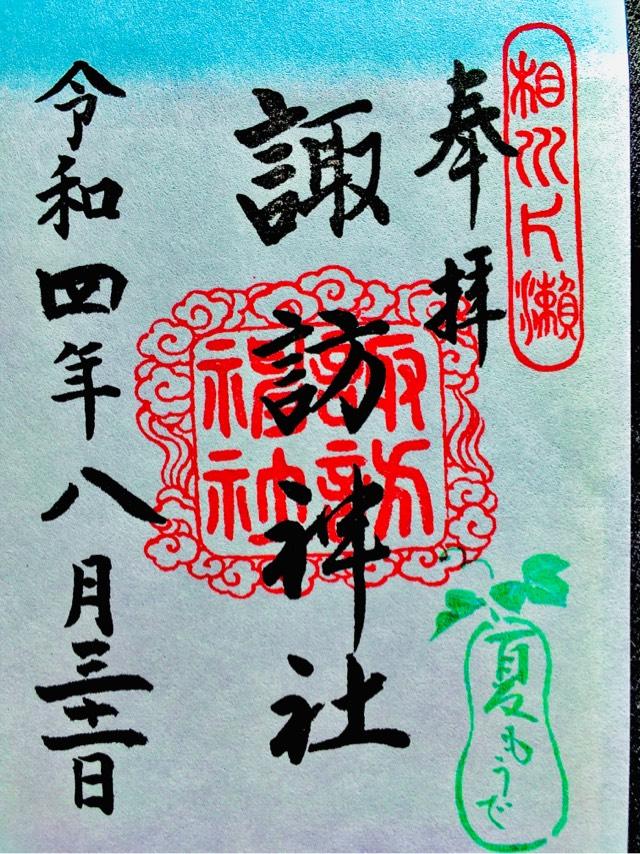 相州片瀬
奉拝
諏訪神社
諏訪神社
令和四年八月三十一日
夏もうで